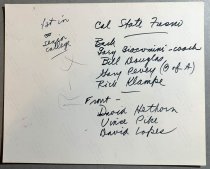 1st in
senior
college
Cal State Fresno
Back
Gary - coach
Bill Douglas
Gary Pevey (B of A)
Rick Klampe
Front -
David Hathorn
Vince Pike
David Lopes